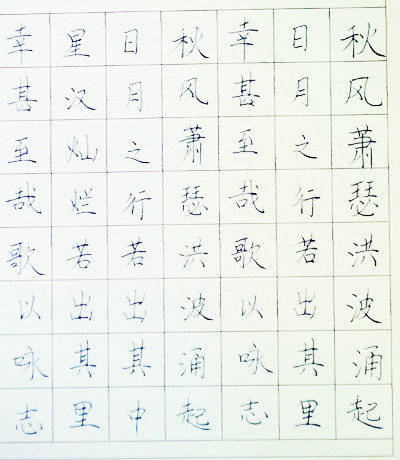 秋风萧瑟洪波涌起
日月之行若出其里
幸甚至哉歌以咏志
秋风萧瑟洪波涌起
日月之行若出其中
星汉灿烂若出其里
幸甚至哉歌以咏志